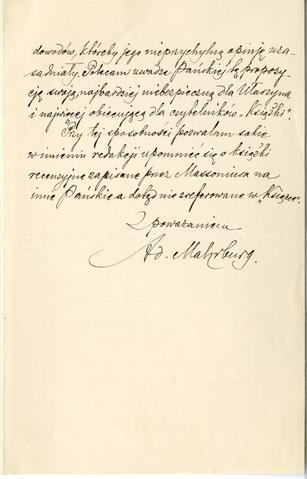 dowodów, któreby jego nieprzychylną opinję uza-
sadniały. Polecam uwadze Pańskiej tę propozy-
cję swoją najbardziej niebezpieczną dla Ułaszyna
i najwięcej obiecującą dla czytelników „Książki".
Przy tej sposobności pozwalam sobie
w imieniu redakcji upomnieć się o książki
recenzyjne zapisane przez Massoniusa na
imię Pańskie a dotąd nie zreferowane w „Książce".
Z poważaniem
Ad. Mahrburg.